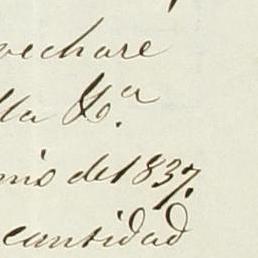 vechare
lla Xª.
nio de 1837.
cantidad